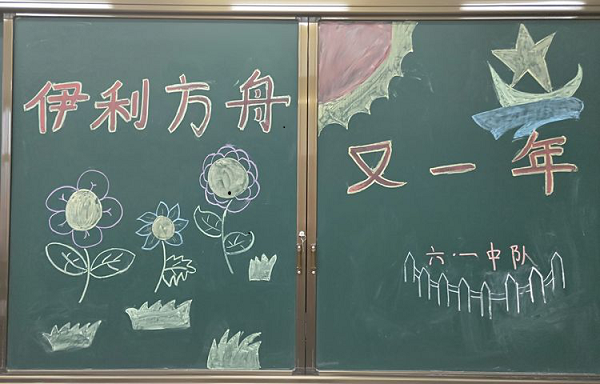 伊利方舟
又一年
六·一中队